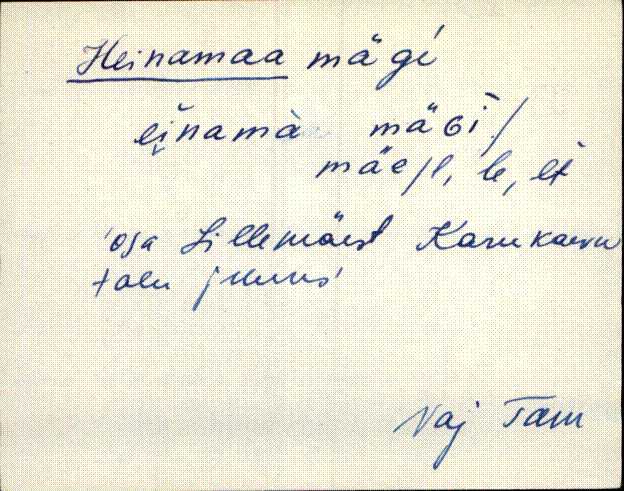 Heinamaa mägi
einamà mäGi /
mäe/l, le, lt
'osa Lillemäest Karukaevu
talu juures'
Vaj Tam